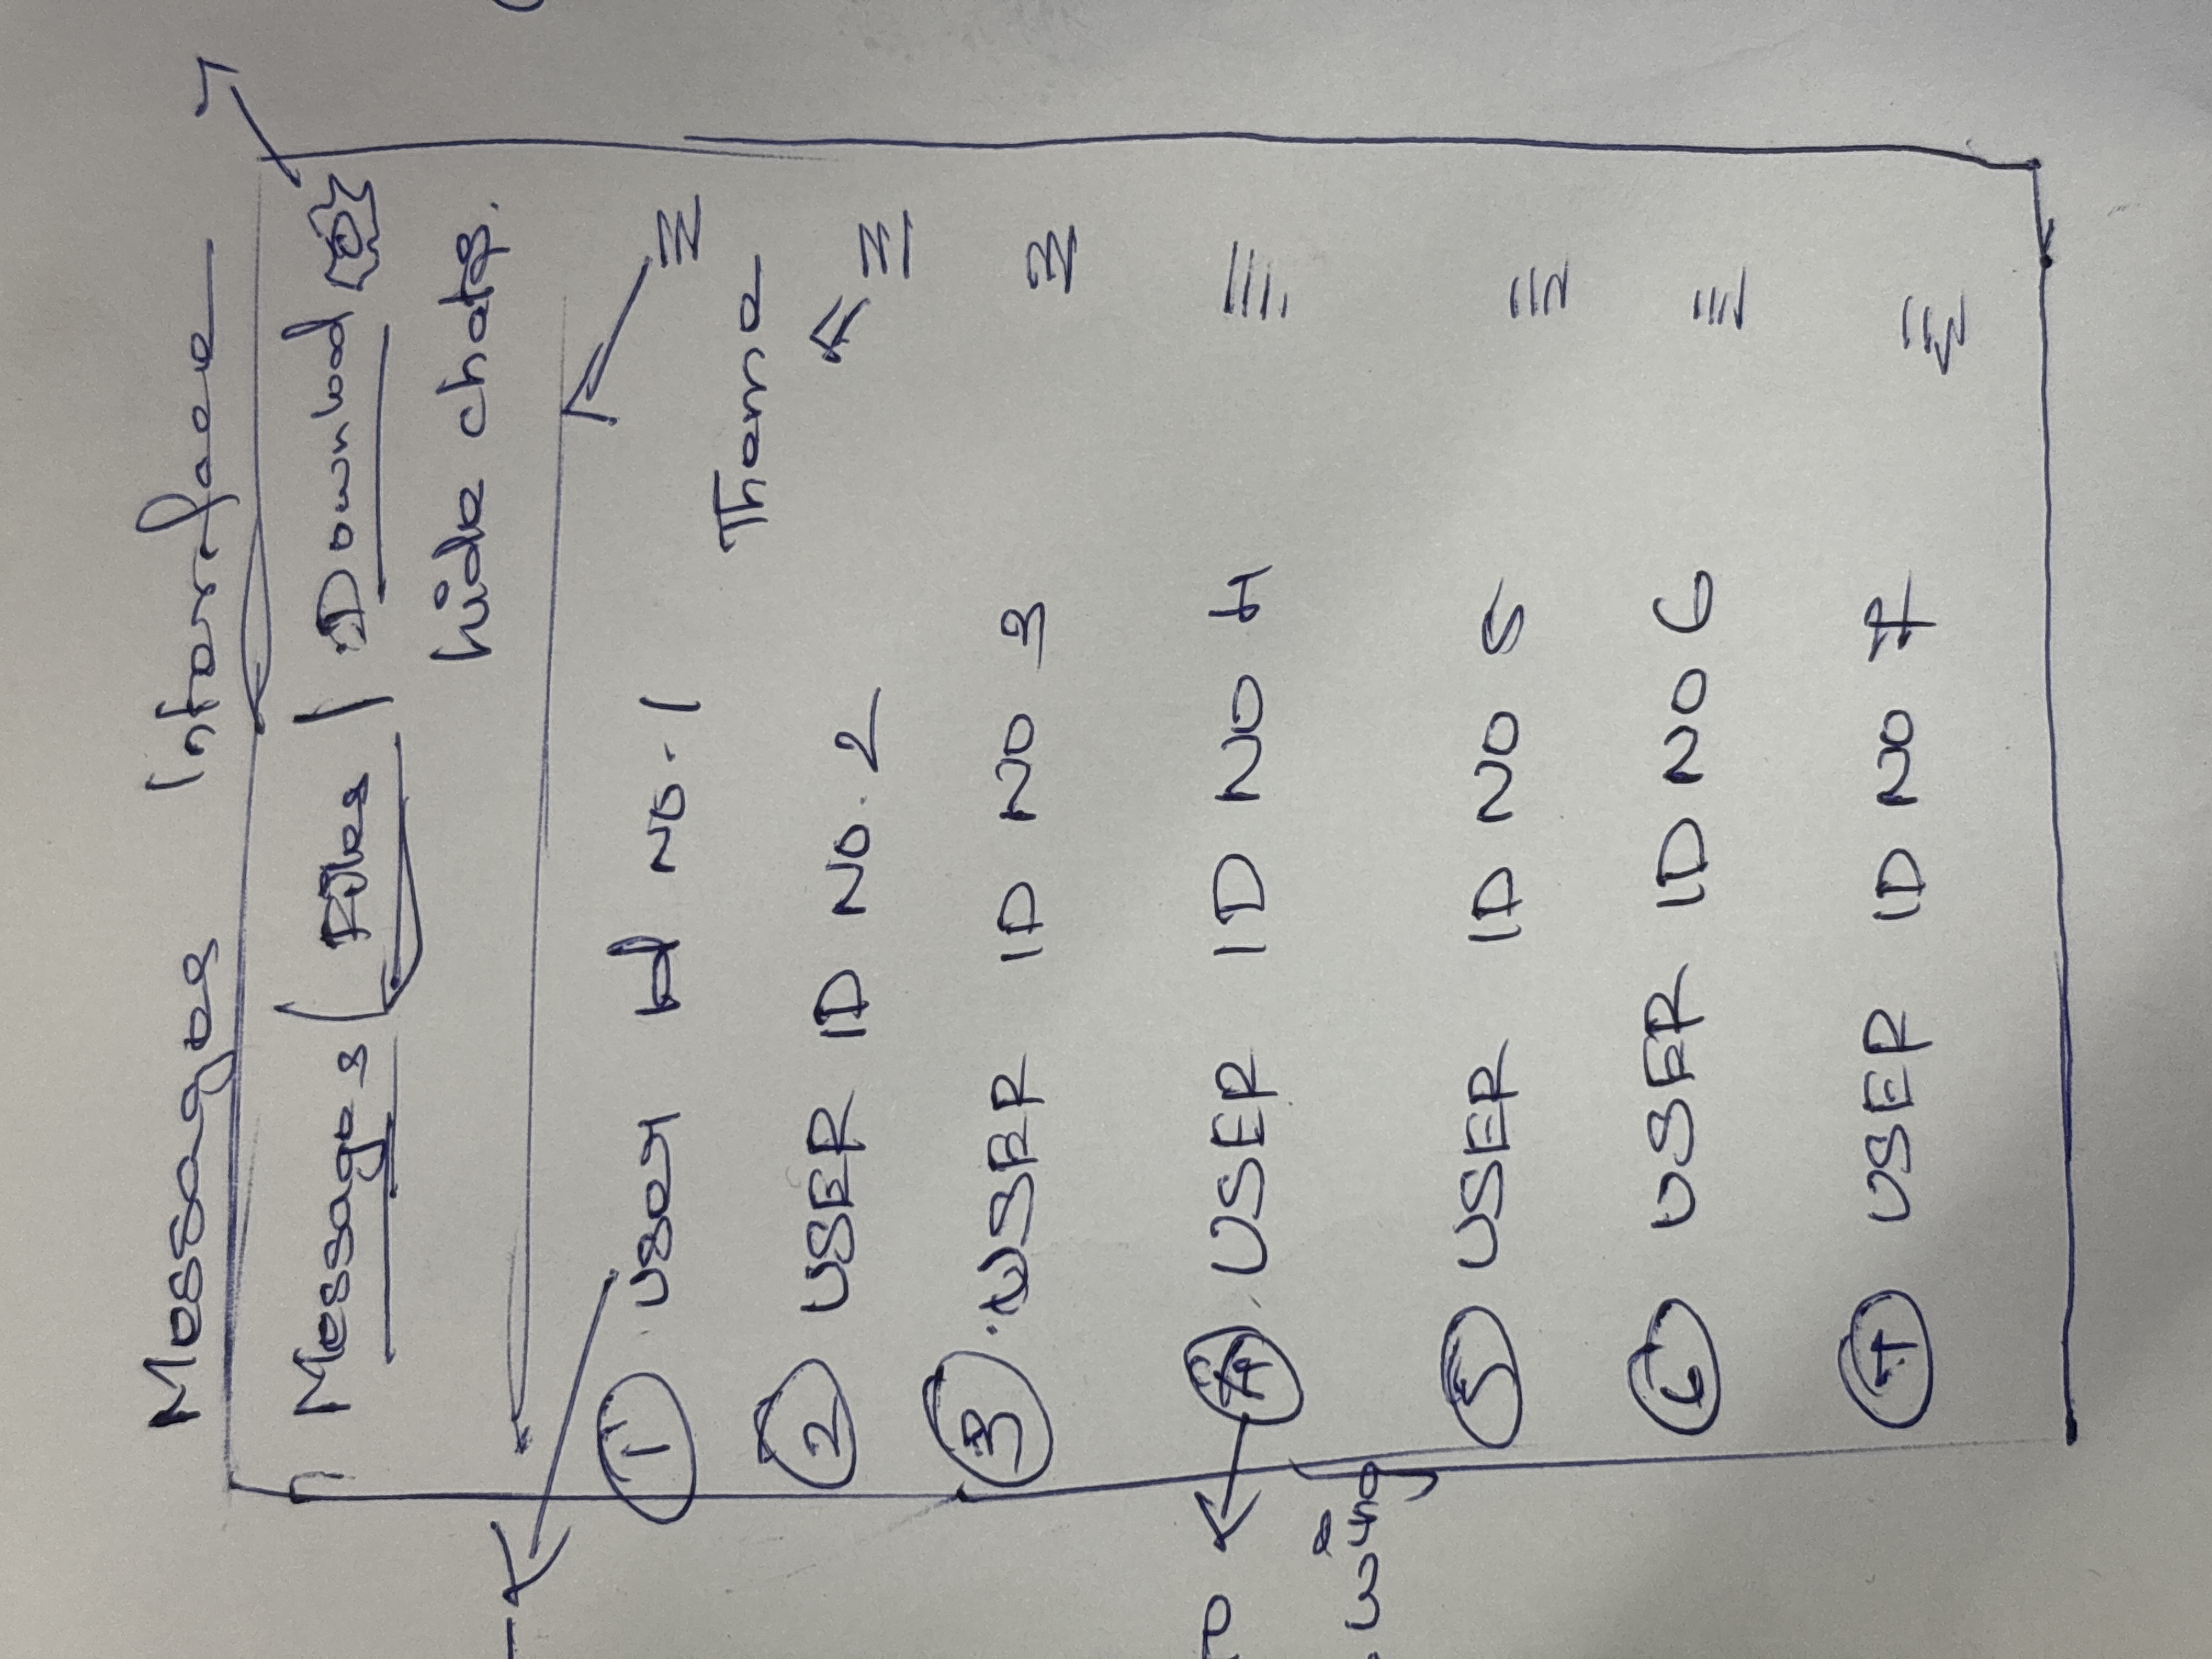 Messages Interface
Messages | Files | Download
hide chats.
1 User Id No. 1
Theme
2 USER ID NO. 2
3 USER ID NO 3
4 USER ID NO 4
wing
5 USER ID NO 5
6 USER ID NO 6
7 USER ID NO 7